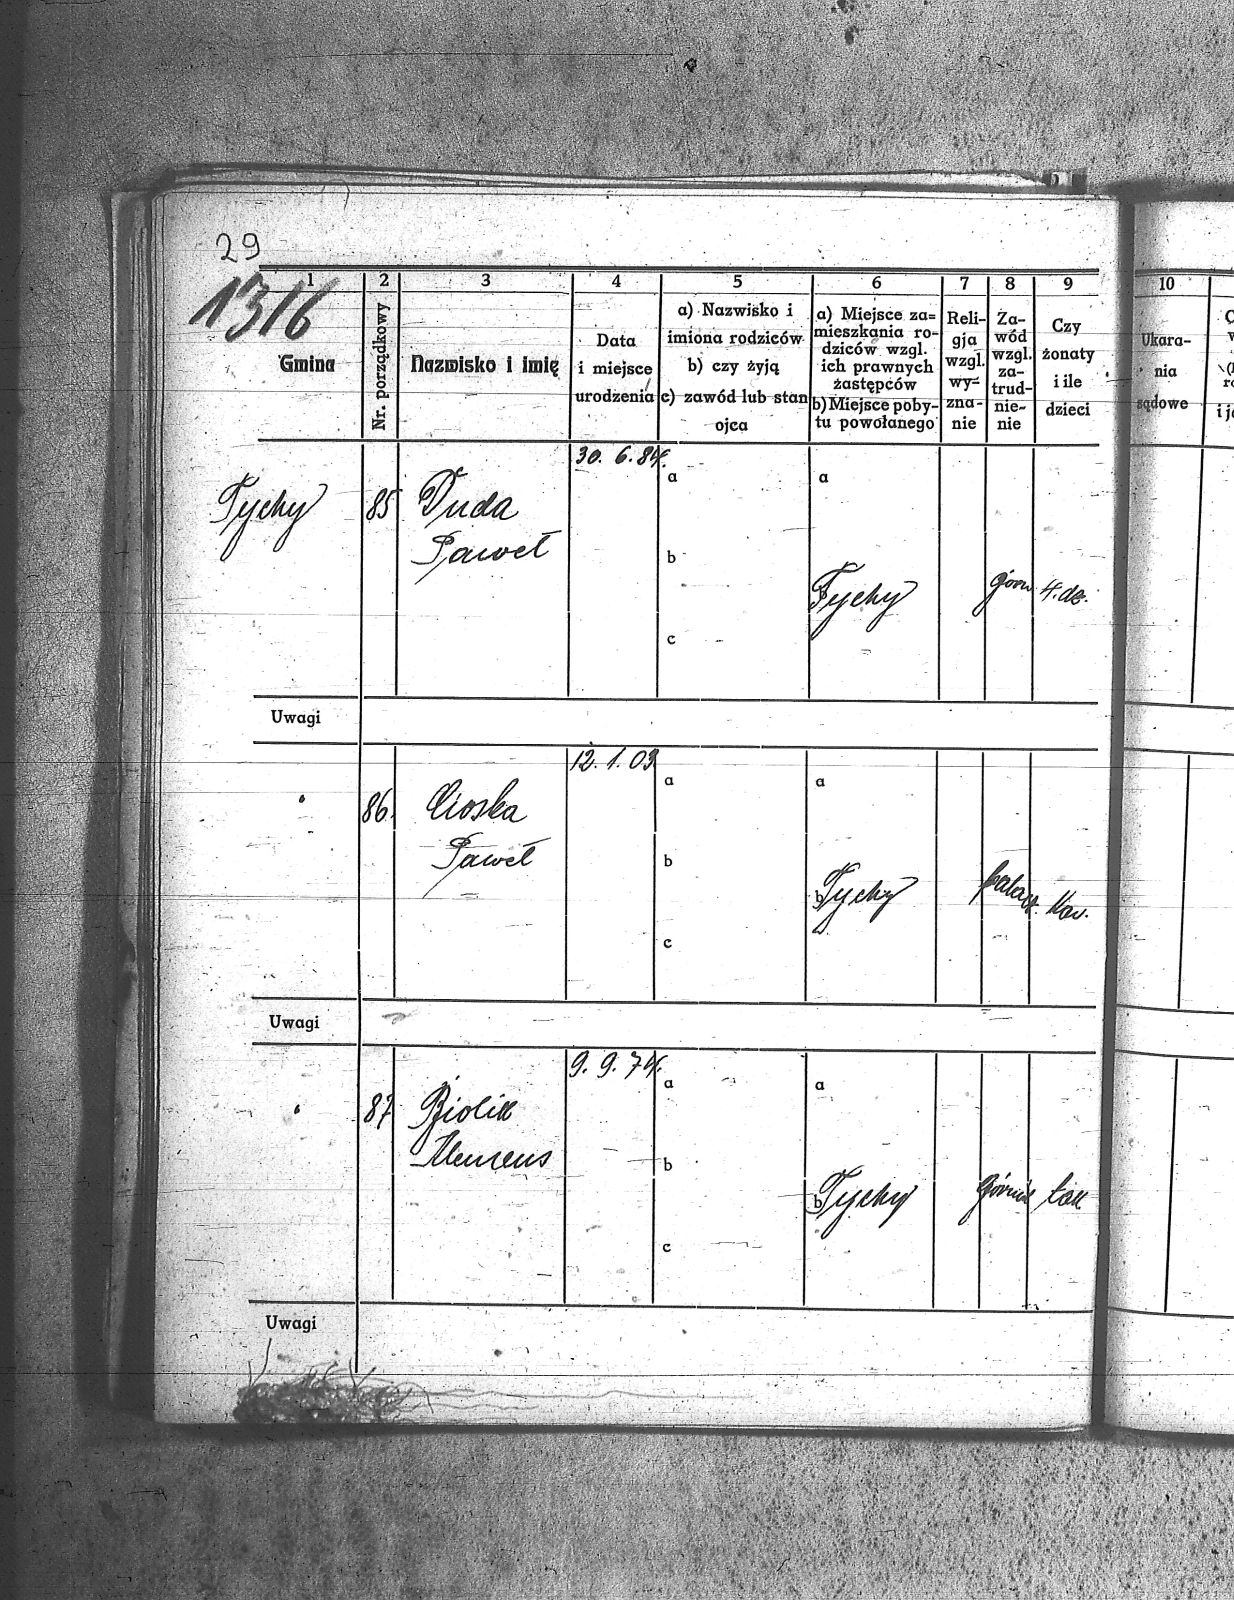 29
1316
1 2 3 4 5 6 7 8 9 10
Gmina
Nr. porządkowy
Nazwisko i imię
Data
i miejsce
urodzenia
a) Nazwisko i
imiona rodziców
b) czy żyją
c) zawód lub stan
ojca
a) Miejsce za=
mieszkania ro-
dziców wzgl.
ich prawnych
zastępców
b) Miejsce poby-
tu powołanego
Reli-
gja
wzgl.
wy=
zna-
nie
Za-
wód
wzgl.
za-
trud-
nie-
nie
Czy
żonaty
i ile
dzieci
Ukara-
nia
sądowe
Tychy 85 Duda
Paweł
30. 6. 84.
a
b
c
a
b Tychy
górn 4. dz.
Uwagi
" 86. Cioska
Paweł
12. 1. 09
a
b
c
a
b Tychy
Kaw.
Uwagi
" 87 Biolik
Klemens
9. 9. 74.
a
b
c
a
b Tychy
górnik
Uwagi